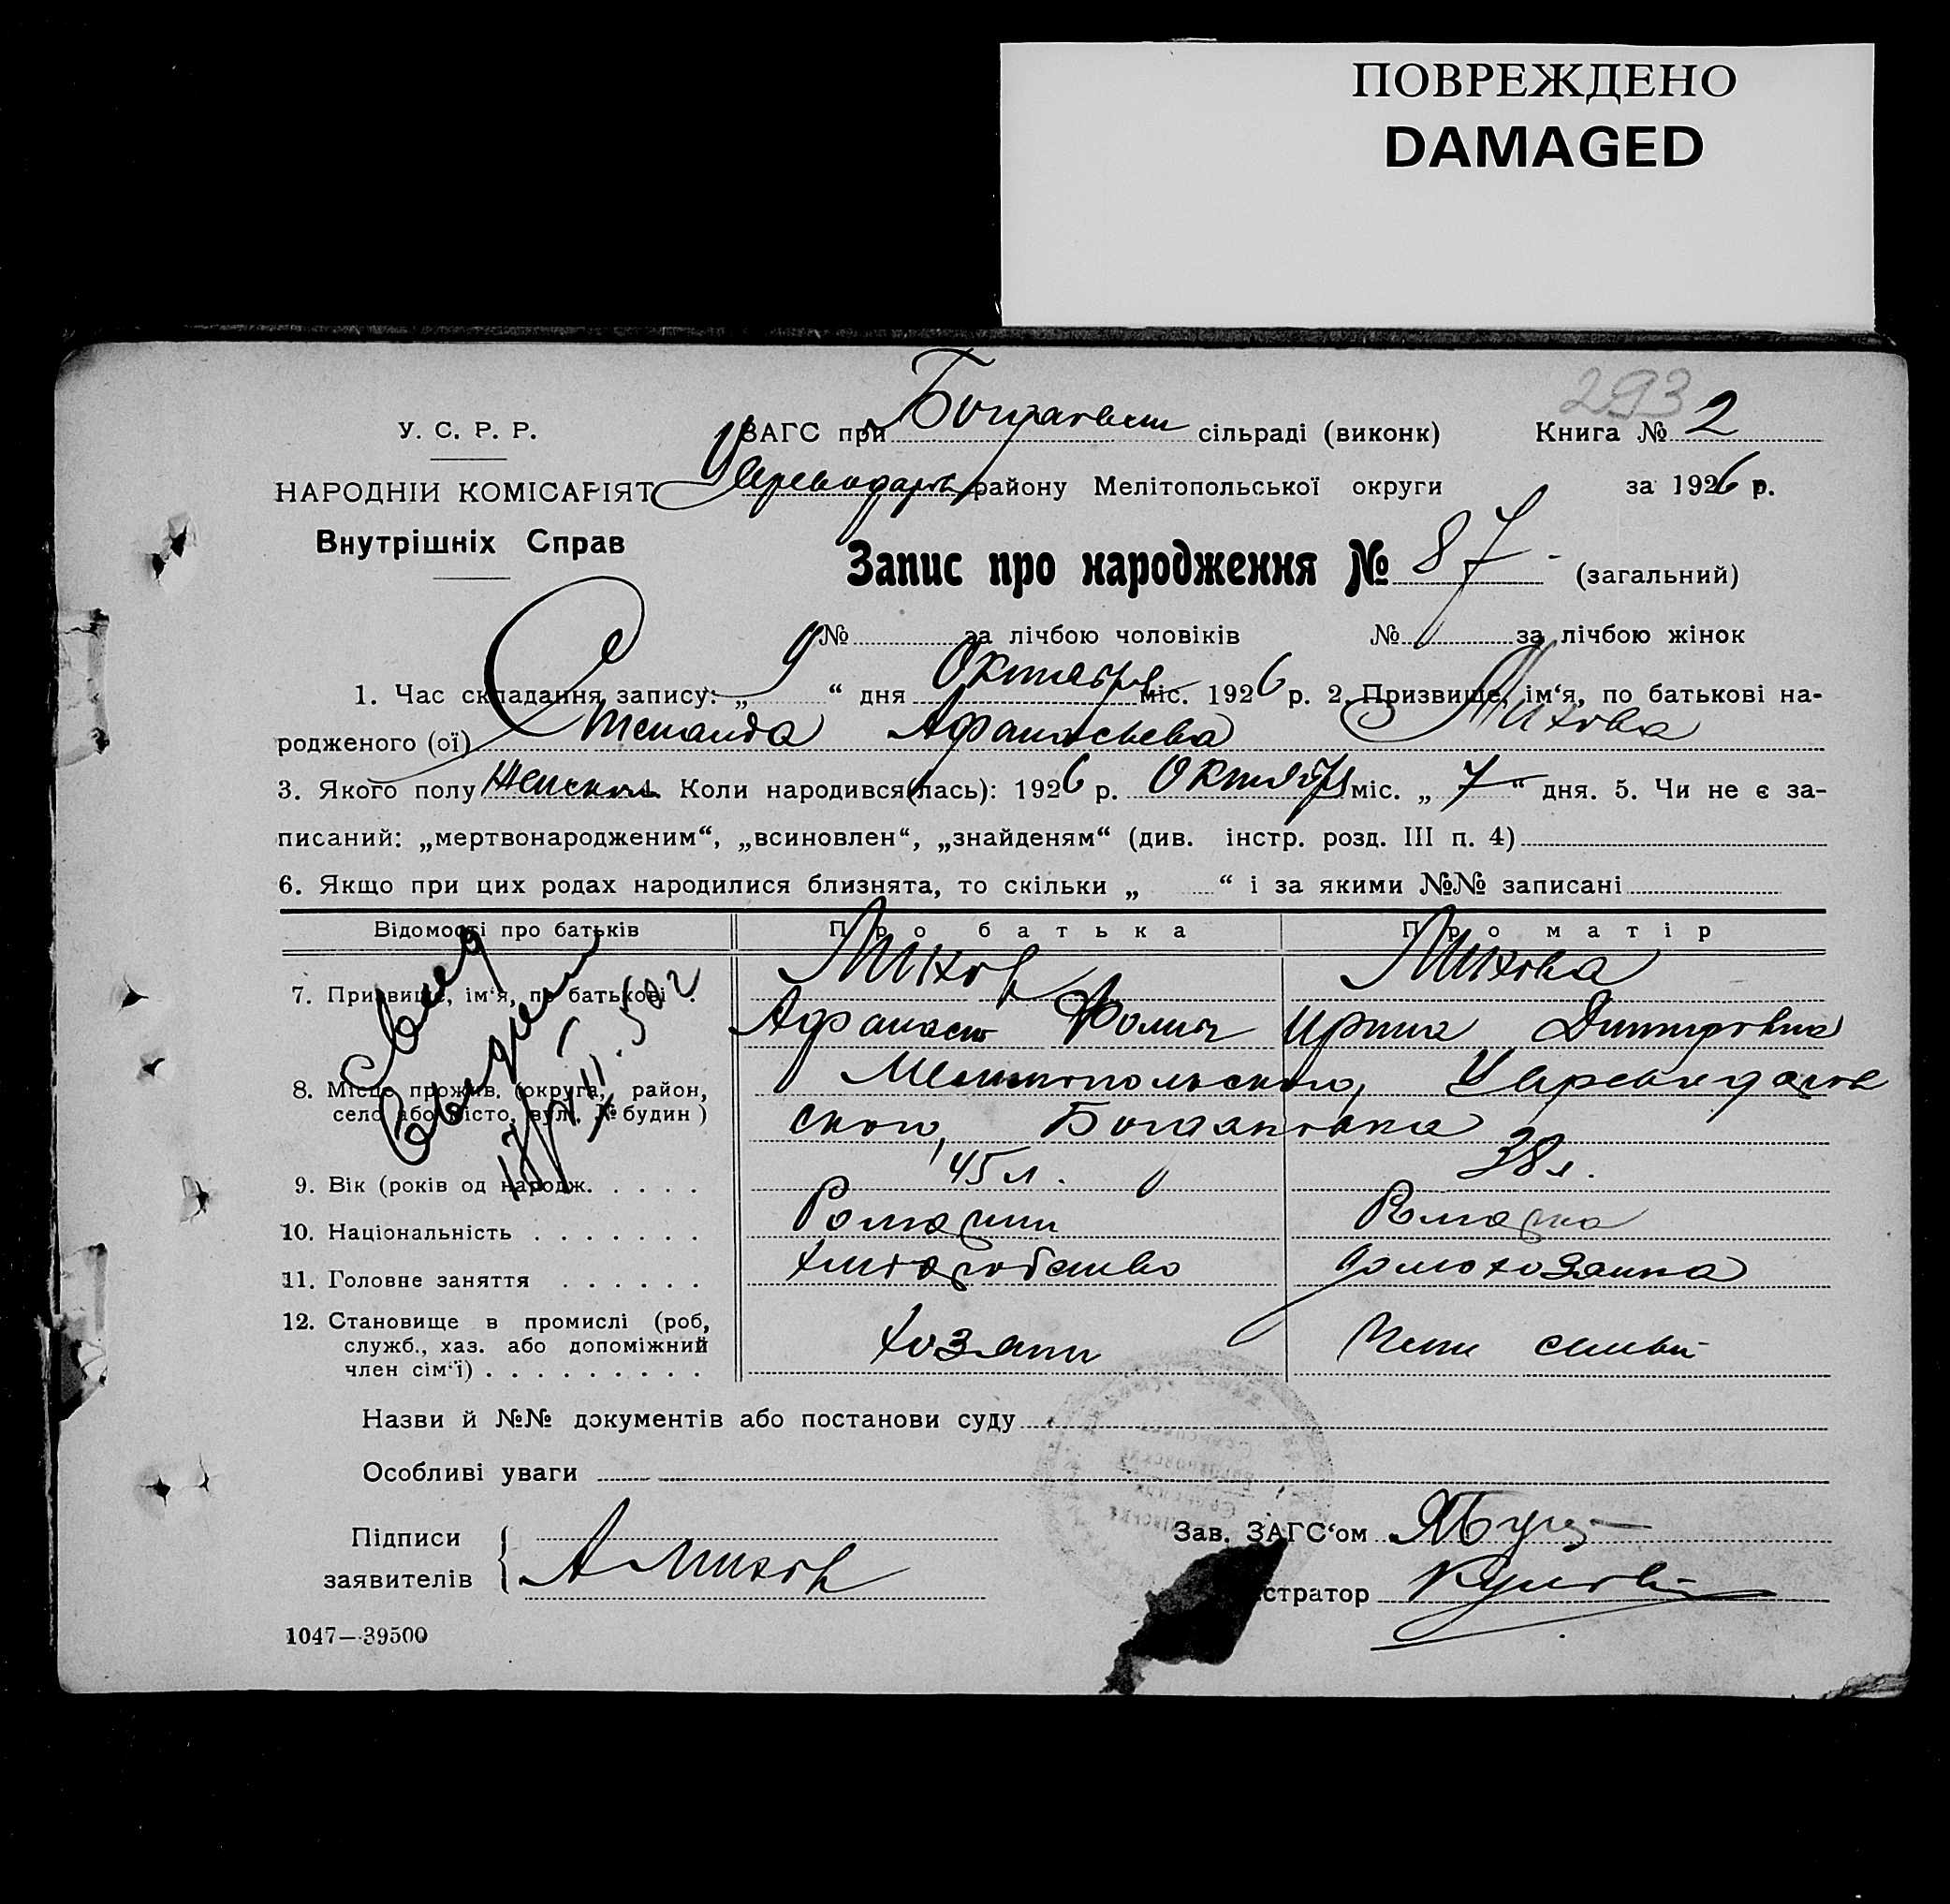 ПОВРЕЖДЕНО
DAMAGED
293
У. С. Р. Р.
ЗАГС при сільраді (виконк) Книга № 2
НАРОДНІЙ КОМІСАРІЯТ району Мелітопольської округи за 1926 р.
Внутрішніх Справ
Запис про народження № 87 (загальний)
№ за лічбою чоловіків № за лічбою жінок
1. Час складання запису: „ 9 “ дня Октября міс. 1926 р. 2. Призвище, ім‘я, по батькові на-
родженого (ої) Степанида Афанасьева
3. Якого полу Женского Коли народився(лась): 1926 р. Октября міс. „ 7 “ дня. 5. Чи не є за-
писаний: „мертвонародженим“, „всиновлен“, „знайденям“ (див. інстр. розд. III п. 4)
6. Якщо при цих родах народилися близнята, то скільки „ “ і за якими №№ записані
Відомості про батьків Про батька Про матір
7. Призвище, ім‘я, по батькові .
Афанасий Фомич Ирина Дмитровна
8. Місце прожив. (округа, район, Мелитопольского,
село або місто, вул., № будин ) ского, Богдановка
9. Вік (років од народж. . . . . 45 л. 38 л.
10. Національність . . . . . . .
11. Головне заняття . . . . . . хлеборобство домохозяйка
12. Становище в промислі (роб,
служб., хаз. або допоміжний хозяин Член семьи
член сім‘ї) . . . . . . . . .
Назви й №№ документів або постанови суду
Особливі уваги
Підписи Зав. ЗАГС‘ом
заявителів стратор
1047—39500